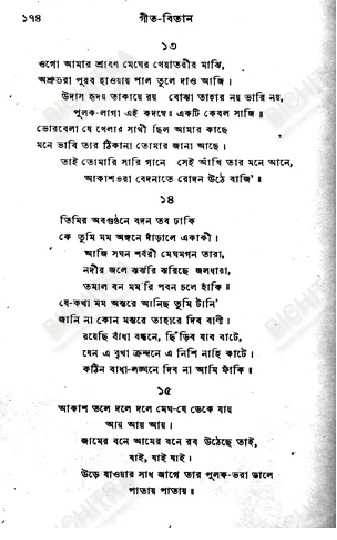 ১৭৪ গীত-বিতান
১৩
ওগো আমার শ্রাবণ মেঘের খেয়াতরীর মাঝি,
অশ্রুভরা পূরব হাওয়ায় পাল তুলে দাও আজি।
উদাস হৃদয় তাকায়ে রয় বোঝা তাহার নয় ভারি নয়,
পুলক-লাগা এই কদম্বের একটি কেবল সাজি॥
ভোরবেলা যে খেলার সাথী ছিল আমার কাছে
মনে ভাবি তার ঠিকানা তোমার জানা আছে।
তাই তোমারি সারি গানে সেই আঁখি তার মনে আনে,
আকাশভরা বেদনাতে রোদন উঠে বাজি'॥
১৪
তিমির অবগুণ্ঠনে বদন তব ঢাকি
কে তুমি মম অঙ্গনে দাঁড়ালে একাকী।
আজি সঘন শর্বরী মেঘমগন তারা,
নদীর জলে ঝর্ঝরি ঝরিছে জলধারা,
তমাল বন মর্মরি পবন চলে হাঁকি॥
যে-কথা মম অন্তরে আনিছ তুমি টানি'
জানি না কোন মন্তরে তাহারে দিব বাণী।
রয়েছি বাঁধা বন্ধনে, ছিঁড়িব যাব বাটে,
যেন এ বৃথা ক্রন্দনে এ নিশি নাহি কাটে।
কঠিন বাধা-লঙ্ঘনে দিব না আমি ফাঁকি॥
১৫
আকাশ তলে দলে দলে মেঘ-যে ডেকে যায়
আয় আয় আয়।
জামের বনে আমের বনে রব উঠেছে তাই,
যাই, যাই যাই।
উড়ে যাওয়ার সাধ জাগে তার পুলক-ভরা ডালে
পাতায় পাতায়।
BICHITRA